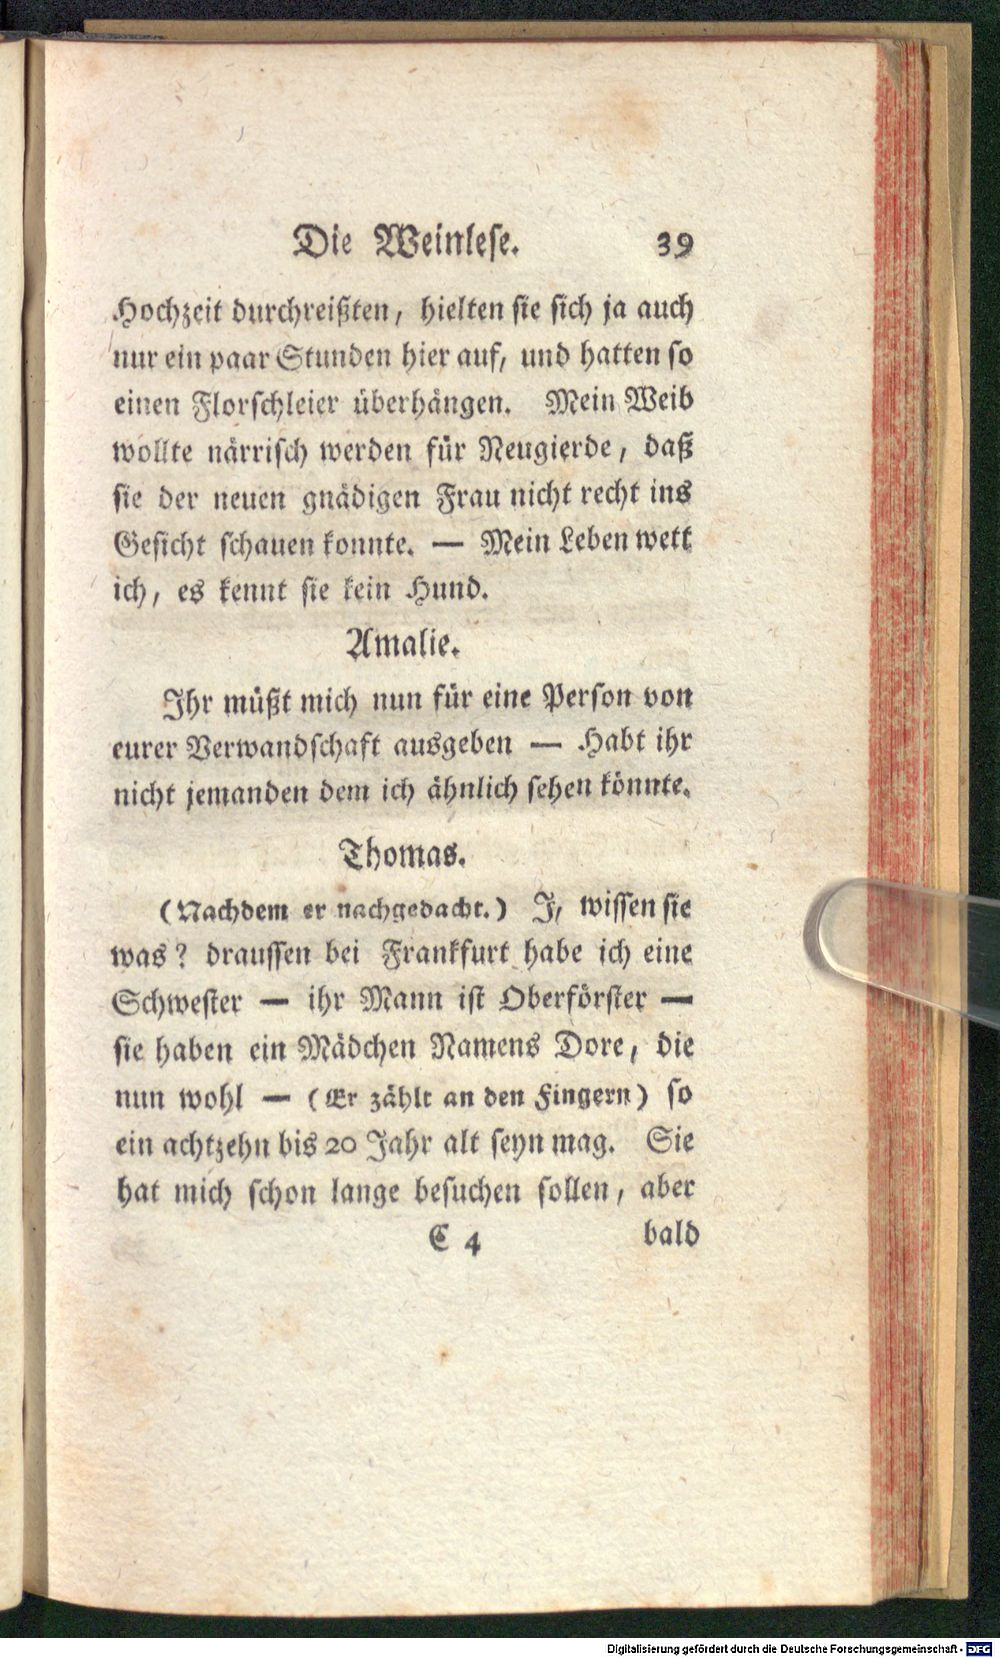 Die Weinlese. 39
Hochzeit durchreißten, hielten sie sich ja auch
nur ein paar Stunden hier auf, und hatten so
einen Florschleier überhängen. Mein Weib
wollte närrisch werden für Neugierde, daß
sie der neuen gnädigen Frau nicht recht ins
Gesicht schauen konnte. — Mein Leben wett
ich, es kennt sie kein Hund.
Amalie.
Ihr müßt mich nun für eine Person von
eurer Verwandschaft ausgeben — Habt ihr
nicht jemanden dem ich ähnlich sehen könnte.
Thomas.
(Nachdem er nachgedacht.) J, wissen sie
was? draussen bei Frankfurt habe ich eine
Schwester — ihr Mann ist Oberförster —
sie haben ein Mädchen Namens Dore, die
nun wohl — (Er zählt an den Fingern) so
ein achtzehn bis 20 Jahr alt seyn mag. Sie
hat mich schon lange besuchen sollen, aber
C 4 bald
Digitalisierung gefördert durch die Deutsche Forschungsgemeinschaft - DFG